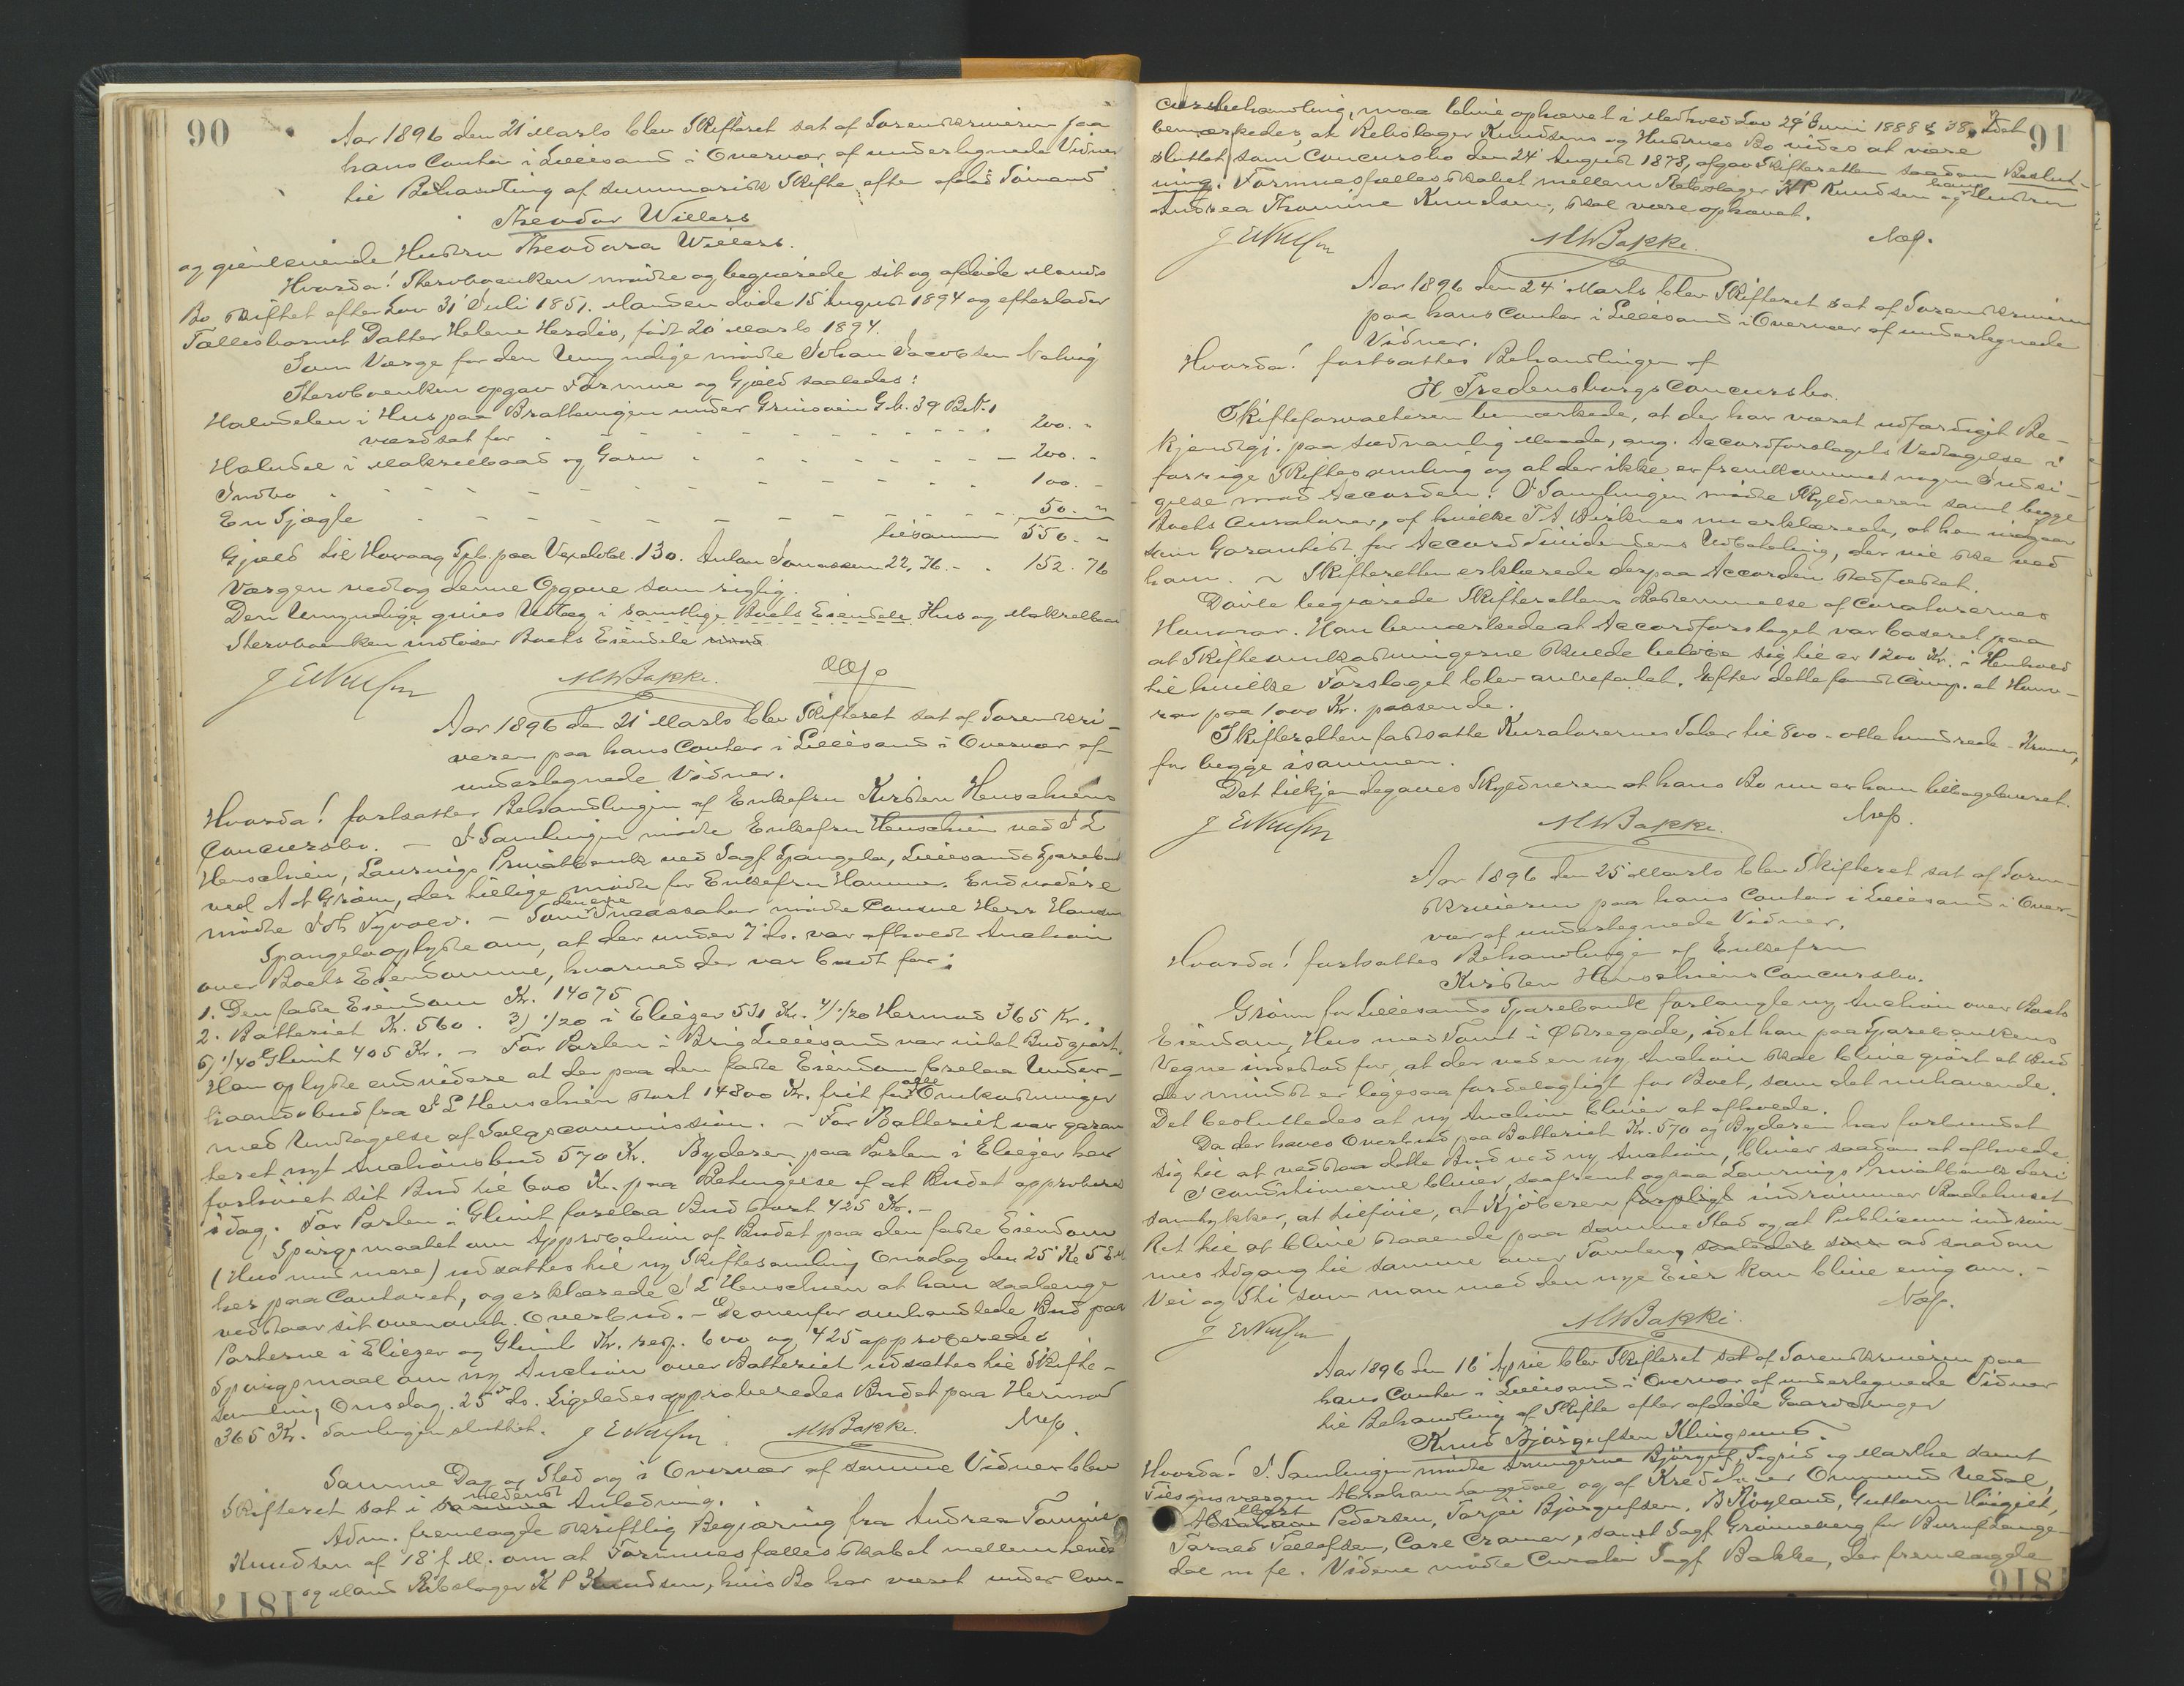 90
Aar 1896 den 21' Marts blev Skifteret sat af Sorenskriveren paa
hans Contor i Lillesand i Overvær af underlegnede Vidner
til Behandling af summarisk Skifte efter afdød Sömand
Theodor Willers
og gjenlevende Hustru Theodora Willers.
Hvorda! Stervboenken mödte og begjærede sit og afdøde Mands
Bo skiftet efter Lov 31' Juli 1851. Manden döde 15' August 1894 og efterlader
Fællesbarnet Datter Helene Herdis, födt 20' Marts 1894.
Som Værge for den Umyndige mödte Johan Jacobsen
Stervboenken opgav Formue og Gjæld saaledes:
Halvdelen i Hus paa Brattevigen under Grimsvin G.b. 39 B.N. 1
værdsat for - - - 200. "
Halvdel i Makrelbaad og Garn - - - 200. -
Indbo - - - 100. -
En Sjægte - - - 50. "
tilsammen 550. "
Gjæld til Howaag Spb. paa Vexelobl. 130. Anton Tomassen 22,76. - . 152. 76
Værgen vedtog denne Opgave som rigtig.
Den Umyndige gives Udlæg i samtlige Boets Eiendele Hus og Makrelbaad
Stervboenken indlöser Boets Eiendele
M W Bakke.
Aar 1896 den 21' Marts blev Skifteret sat af Sorenskri-
veren paa hans Contor i Lillesand i Overvær af
underlegnede Vidner.
Hvorda! fortsattes Behandlingen af Enkefru Kirsten Henschiens
Concursbo. - I Samlingen mödte Enkefru Henschien ved I L
Henschien, Laurvigs Privatbank ved Sagf Spangelo, Lillesands Sparebank
ved A A Grönn, der tillige mödte for Enkefru Hammer. Endvidere
mödte Joh Tyvold. - Som den ene Incassator mödte Consul Herr Hansen
Spangelo oplyste om, at der under 7' ds. var afholdt Auction
over Boets Eiendomme, hvorved der var budt for:
1. Den faste Eiendom Kr. 14075
2. Batteriet Kr. 560. 3) 1/20 i Eliezer 531 Kr. 4) 1/20 Hermod 365 Kr.
5) 1/40 Glimt 405 Kr. - For Parten i Brig Lillesand var intet Bud gjort.
Han oplyste endvidere at der paa den faste Eiendom forelaa Under-
haandsbud fra I L Henschien stort 14800 Kr. frit for alle Omkostninger
med Undtagelse af Salgscommission. - For Batteriet var garan
teret nyt Auctionsbud 570 Kr. Byderen paa Parten i Eliezer har
forhöiet sit Bud til 600 Kr. paa Betingelse af at Budet approberes
idag. For Parten i Glimt forelaa Bud stort 425 Kr. -
Spörgsmaalet om Approbation af Budet paa den faste Eiendom
(Hus med mere) udsattes til ny Skiftesamling Onsdag den 25' Kl 5 Em
her paa Contoret, og erklærede I L Henschien at han saalænge
vedstaar sit ovenanf. Overbud. - De ovenfor omhandlede Bud paa
Parterne i Eliezer og Glimt Kr. resp. 600 og 425 approberedes
Spörgsmaal om ny Auction over Batteriet udsættes til Skifte-
samling Onsdag 25' ds. Ligeledes approberedes Budet paa Hermod
365 Kr. Samlingen sluttet.
M W Bakke.
Samme Dag og Sted og i Overvær af samme Vidner blev
Skifteret sat i samme nedenst Anledning.
Adm. fremlagde skriftlig Begjæring fra Andrea Tomine
Knudsen af 18' f M. om at Formuesfællesskabet mellem hende
og Mand Rebslager K P Knudsen, hvis Bo har været under Con-
91
cursbehandling, maa blive ophævet i Medhold Lov 29' Juni 1888 § 38, Idet
bemærkedes, at Rebslager Knudsens og Hustrues Bo vides at være
sluttet som Concursbo den 24' August 1878, afgav Skifteretten saadan Beslut-
ning: Formuesfællesskabet mellem Rebslager K P Knudsen og hans Hustru
Andrea Thomine Knudsen, skal være ophævet.
M W Bakke.
Aar 1896 den 24' Marts blev Skifteret sat af Sorenskriveren
paa hans Contor i Lillesand i Overvær af underlegnede
Vidner.
Hvorda! fortsattes Behandlingen af
H Fredensborgs Concursbo.
Skifteforvalteren bemærkede, at der har været udfærdiget Be-
kjendtgj. paa sædvanlig Maade, ang. Accordforslagets Vedtagelse i
forrige Skiftesamling og at der ikke er fremkommet nogen Indsi-
gelse mod Accorden. I Samlingen mödte Skyldneren samt begge
Boets Curatorer, af hvilke T A Birknes nu erklærede, at han indgaar
som Garantist for Accorddividendens Udbetaling, der vil ske ved
ham. - Skifteretten erklærede derpaa Accorden stadfæstet.
begjærede Skifterettens Bestemmelse af Curatorernes
Honorar. Han bemærkede at Accordforslaget var baseret paa
at Skifteomkostningerne skulde belöbe sig til ca 1200 Kr. i Henhold
til hvilke Forslaget blev anbefalet. Efter dette fandt Comp. et Hono-
rar paa 1000 Kr. passende.
Skifteretten fastsatte Kuratorernes Salær til 800 - otte hundrede - Kroner,
for begge isammen.
Det tilkjendegaves Skyldneren at hans Bo nu er ham tilbageleveret.
M W Bakke.
Aar 1896 den 25' Marts blev Skifteret sat af Soren-
skriveren paa hans Contor i Lillesand i Over-
vær af underlegnede Vidner.
Hvorda! fortsattes Behandlinge af Enkefru
Kirsten Henschiens Concursbo.
Grönn for Lillesands Sparebank forlangte ny Auction over Boets
Eiendom, Hus med Tomt i Østregade, idet han paa Sparebankens
Vegne indestod for, at der ved en ny Auction skal blive gjort et Bud
der mindst er ligesaa fordelagtigt for Boet, som det nuhavende.
Det besluttedes at ny Auction bliver at afholde.
Da der haves Overbud paa Batteriet Kr. 570 og Byderen har forbundet
sig til at vedstaa dette Bud ved ny Auction, bliver saadan at afholde.
I Conditionerne bliver, saafremt ogsaa Laurvigs Privatbank deri
samtykker, at tilföie, at Kjöberen forpligt indrömmer Badehuset
Ret til at blive staaende paa samme Sted og at Publicum indröm-
mes Adgang til samme over Tomten, saaledes som ad saadan
Vei og Sti som man med den nye Eier kan blive enig om. -
M W Bakke.
Aar 1896 den 16' April blev Skifteret sat af Sorenskriveren paa
hans Contor i Lillesand i Overvær af underlegnede Vidner
til Behandling af Skifte efter afdöde Gaardbruger
Knud Björgufsen Klingsund.
Hvorda! I Samlingen mödte Arvingerne Björguf, Sigrid og Marthe samt
Tilsynsværgen Abraham Langedal og af Kreditorer Ommund Uedal,
Abraham Albert Pedersen, Torjei Björgufsen, B Röyland, Guttorm
Tarald Tellefsen, Carl Cramer, samt Sagf Grönneberg for Buruf Lange-
dal m fl. Videre mödte Curator Sagf Bakke, der fremlagde
1817
1816